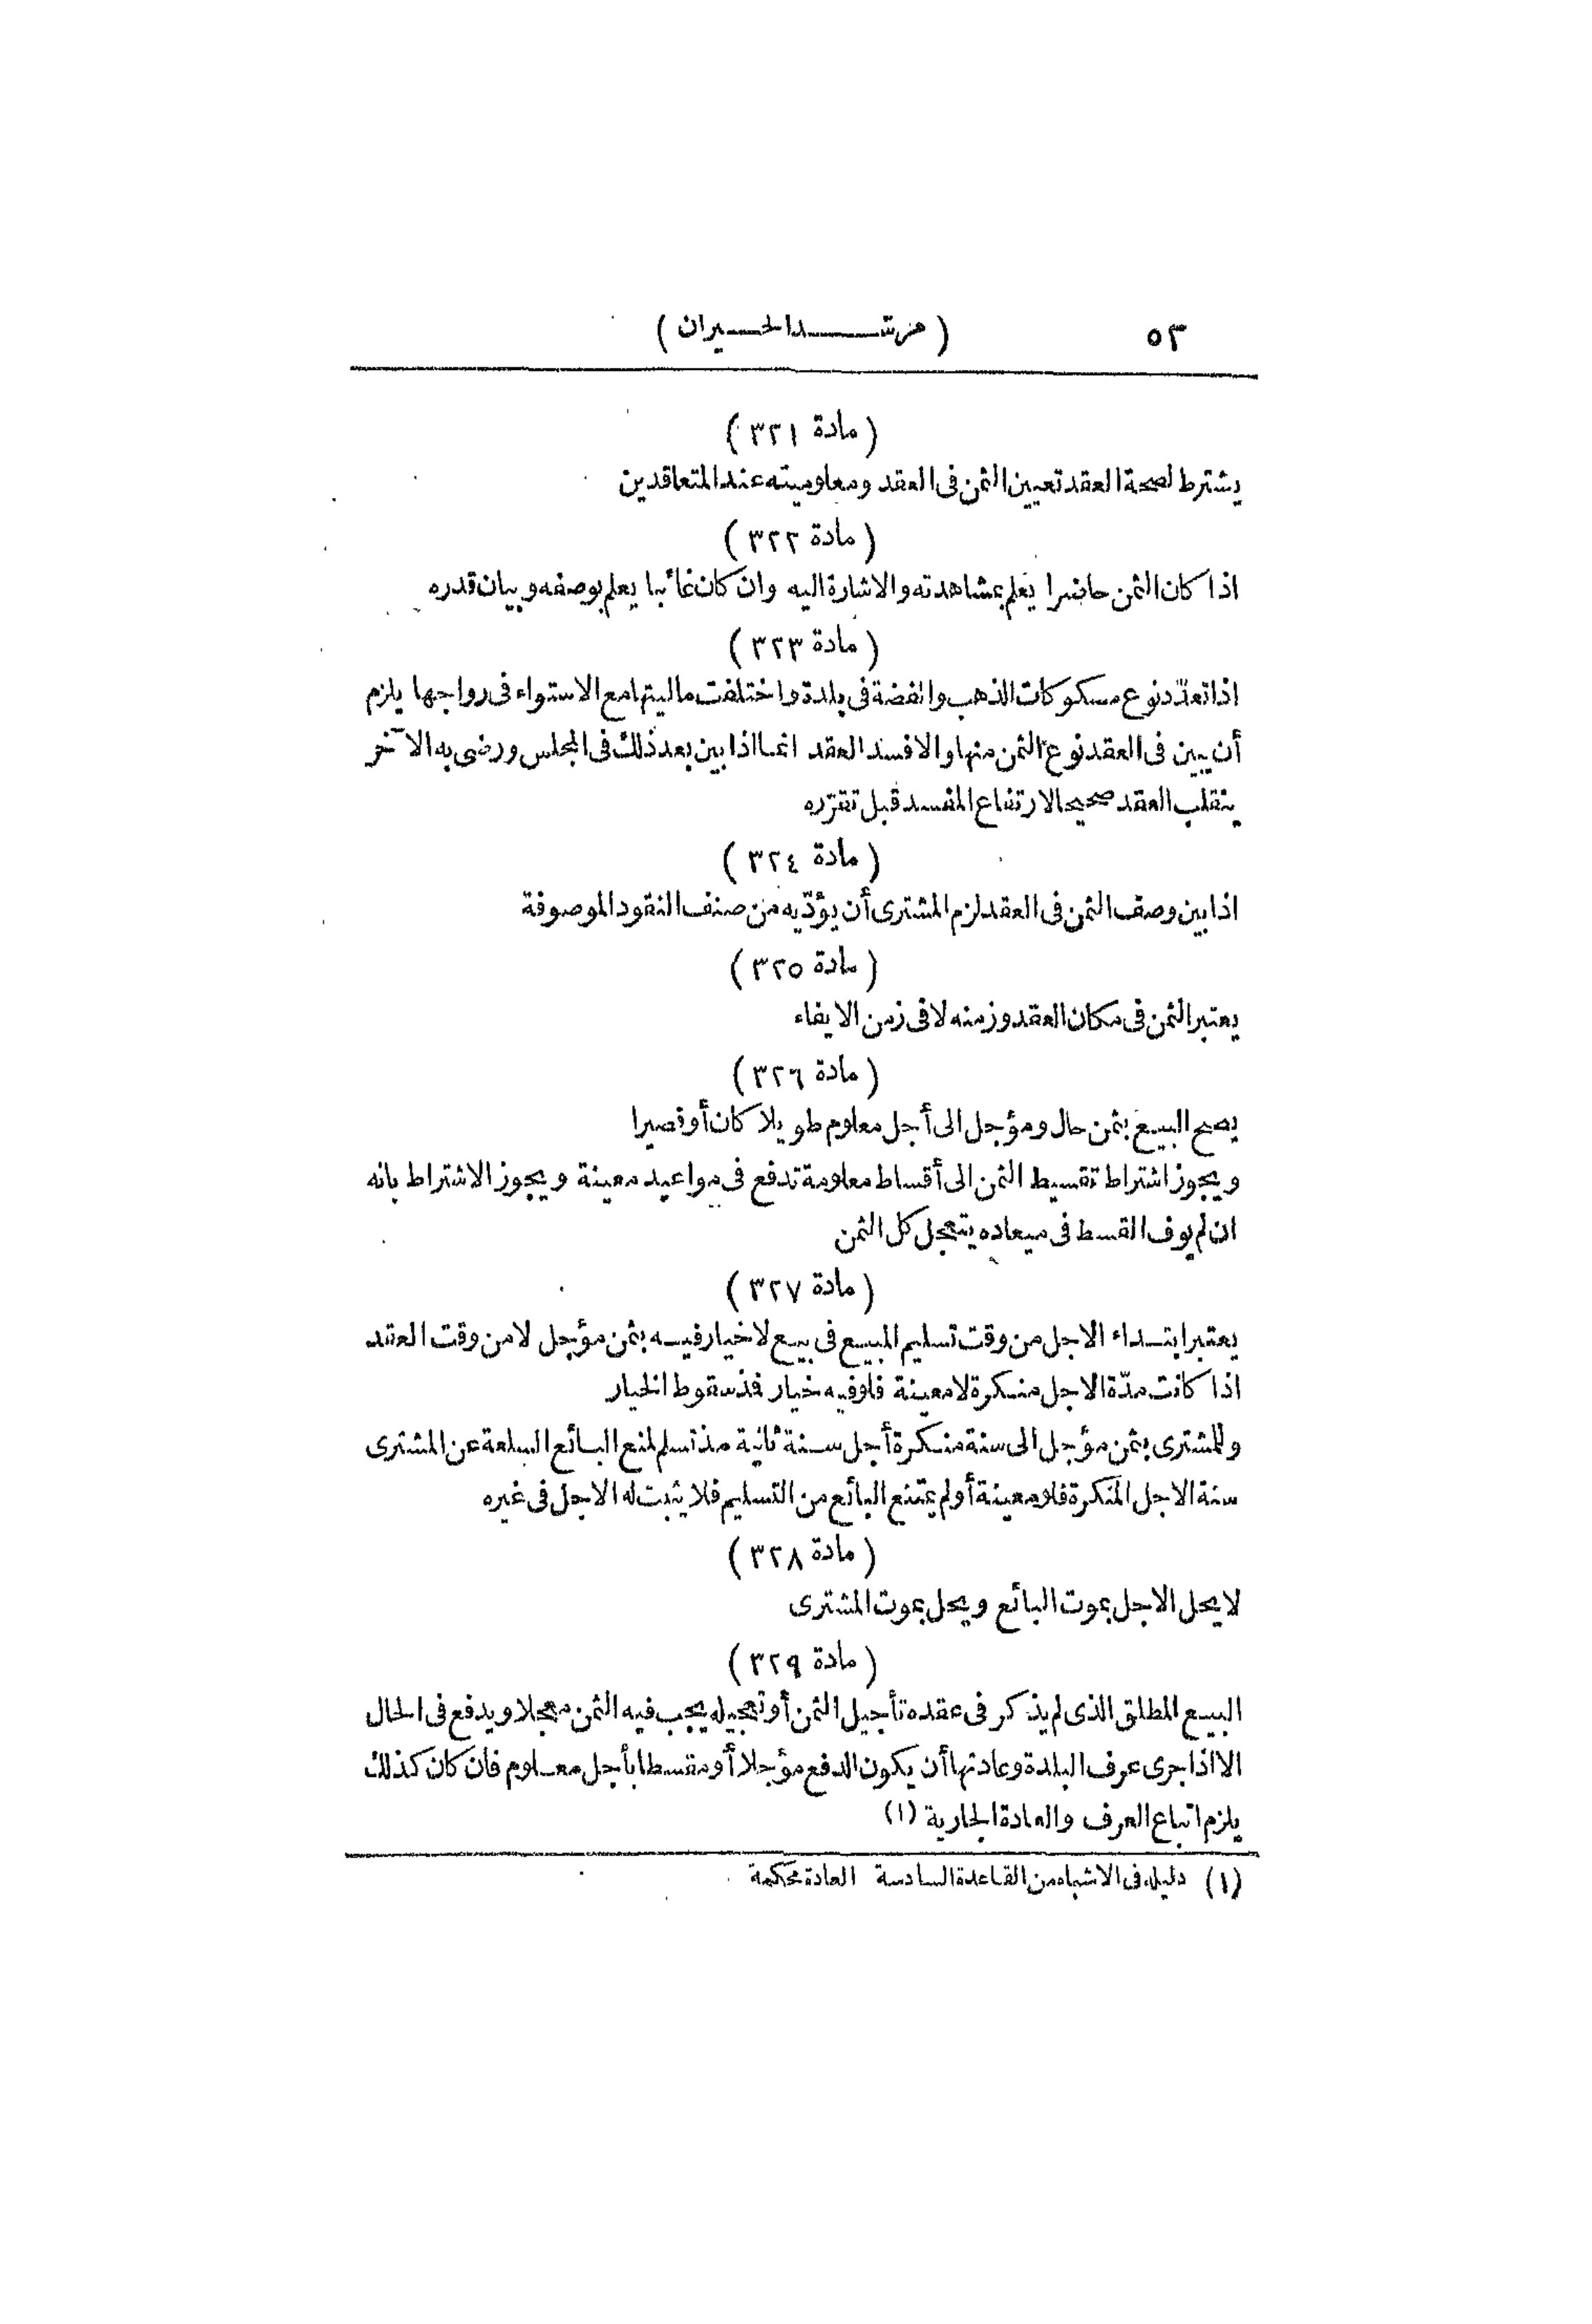 ٥٣ (مرشد الحيران)
(مادة ٣٢١)
يشترط لصحة العقد تعيين الثمن فى العقد ومعلوميته عند المتعاقدين
(مادة ٣٢٢)
اذا كان الثمن حاضرا يعلم بمشاهدته والاشارة اليه وان كان غائبا يعلم بوصفه وبيان قدره
(مادة ٣٢٣)
اذا تعدّد نوع مسكوكات الذهب والفضة فى بلدة واختلفت ماليتها مع الاستواء فى رواجها يلزم
أن يبين فى العقد نوع الثمن منها والا فسد العقد انما اذا بين بعد ذلك فى المجلس ورضى به الآخر
ينقلب العقد صحيحا لارتفاع المفسد قبل تقرّره
(مادة ٣٢٤)
اذا بين وصف الثمن فى العقد لزم المشترى أن يؤدّيه من صنف النقود الموصوفة
(مادة ٣٢٥)
يعتبر الثمن فى مكان العقد وزمنه لا فى زمن الايفاء
(مادة ٣٢٦)
يصح البيع بثمن حال ومؤجل الى أجل معلوم طويلا كان أو قصيرا
ويجوز اشتراط تقسيط الثمن الى أقساط معلومة تدفع فى مواعيد معينة ويجوز الاشتراط بانه
ان لم يوف القسط فى ميعاده يتعجل كل الثمن
(مادة ٣٢٧)
يعتبر ابتداء الاجل من وقت تسليم المبيع فى بيع لا خيار فيه بثمن مؤجل لا من وقت العقد
اذا كانت مدّة الاجل منكرة لا معينة فلو فيه خيار فمذ سقوط الخيار
وللمشترى بثمن مؤجل الى سنة منكرة أجل سنة ثانية مذ تسلم لمنع البائع السلعة عن المشترى
سنة الاجل المنكرة فلو معينة أو لم يمتنع البائع من التسليم فلا يثبت له الاجل فى غيره
(مادة ٣٢٨)
لا يحل الاجل بموت البائع ويحل بموت المشترى
(مادة ٣٢٩)
البيع المطلق الذى لم يذكر فى عقده تأجيل الثمن أو تعجيله يجب فيه الثمن معجلا ويدفع فى الحال
الا اذا جرى عرف البلدة وعادتها أن يكون الدفع مؤجلا أو مقسطا بأجل معلوم فان كان كذلك
يلزم اتباع العرف والعادة الجارية (١)
(١) دليله فى الاشباه من القاعدة السادسة العادة محكمة